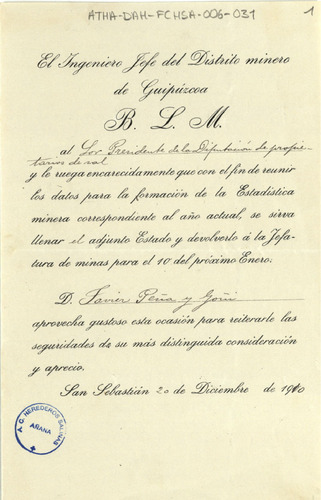 ATHA-DAH-FCHSA-006-031
1
El Ingeniero Jefe del Distrito minero
de Guipúzcoa
B. L. M.
al Sor Presidente de la Diputación de propie-
tarios de sal
y le ruega encarecidamente que con el fin de reunir
los datos para la formación de la Estadística
minera correspondiente al año actual, se sirva
llenar el adjunto Estado y devolverlo á la Jefa-
tura de minas para el 10 del próximo Enero.
D. Javier Peña y Goñi
aprovecha gustoso esta ocasión para reiterarle las
seguridades de su más distinguida consideración
y aprecio.
San Sebastián 20 de Diciembre de 1910
A. C. HEREDEROS SALINAS
AÑANA